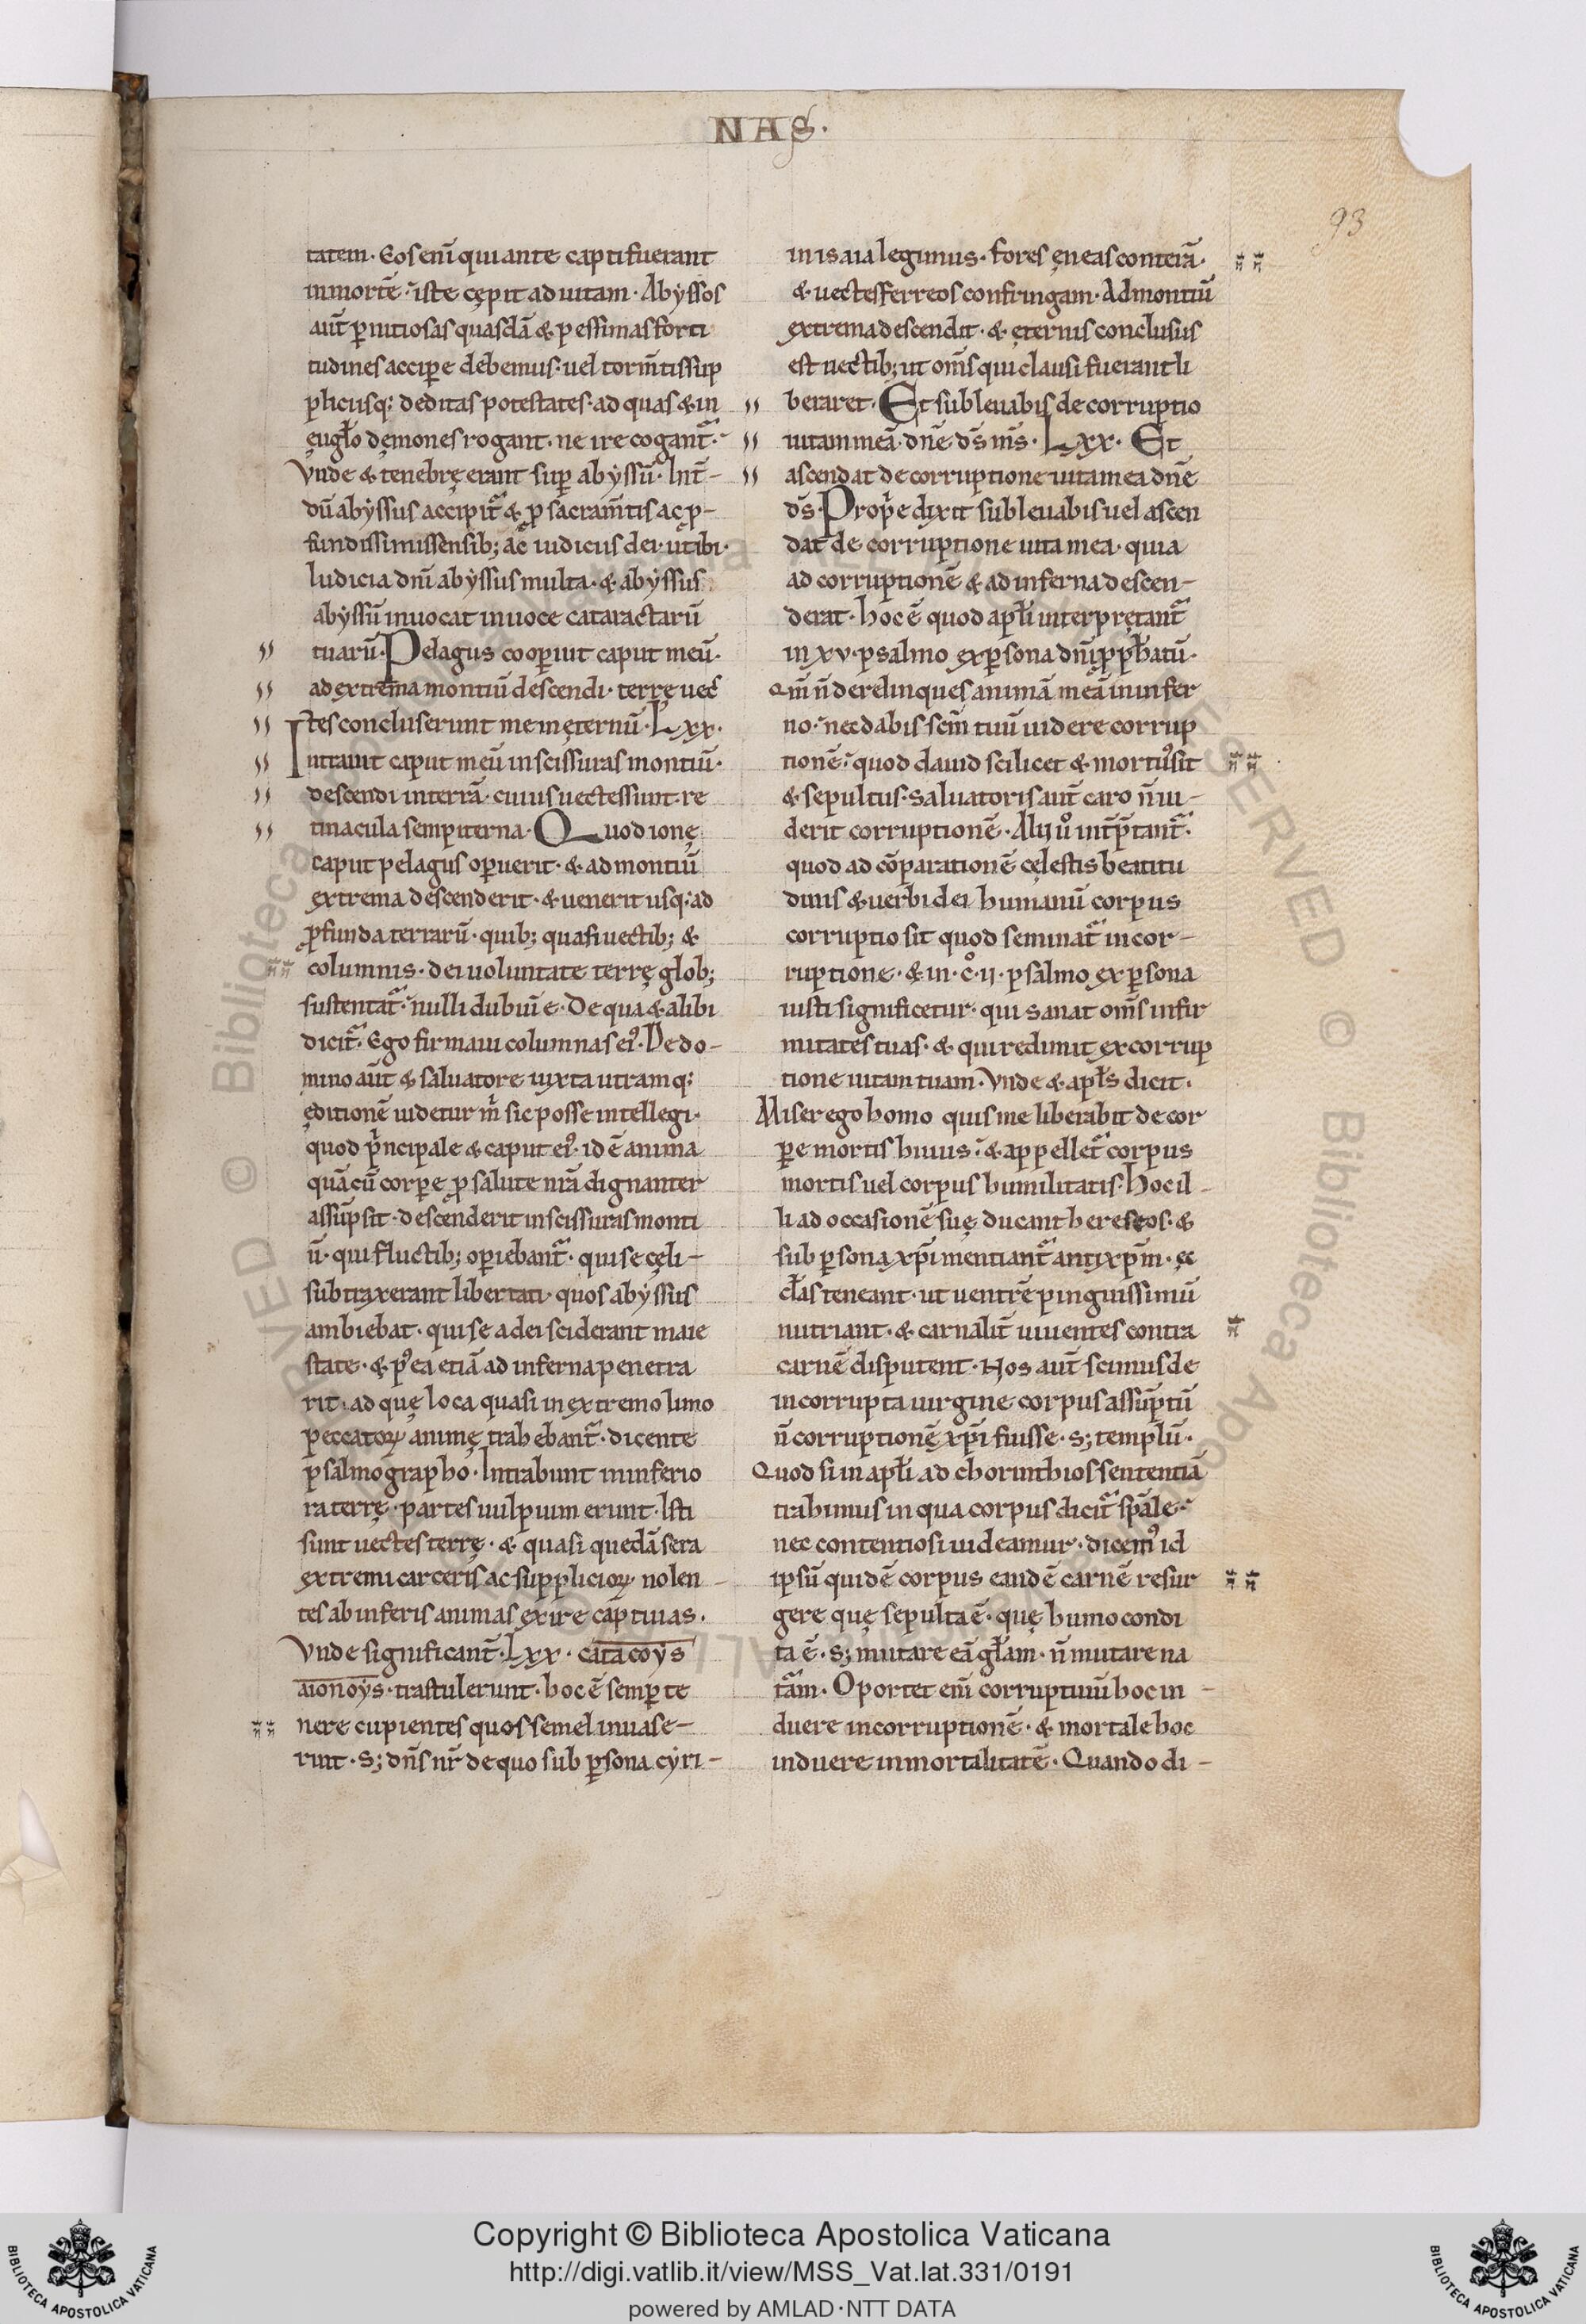 NAS.
93
tatem. Eos eni̅ qui ante capti fuerant
in morte̅. iste cępit ad uitam. Abyssos
aut̅ p̲nitiosas quasda̅ & pessimas forti
tudines accip̲e debemus. uel torm̅tis sup
plicijsq; deditas potestates. ad quas & in
ęuglo̅ dęmones rogant. ne ire cogant̃.
Vnde & tenebrę erant sup̲ abyssu̅. Int̅-
du̅ abyssus accipit̃ & p̲ sacram̅tis ac p̲-
fundissimis sensib; ac̅ iudicijs dei. ut ibi.
Iudicia dn̅i abyssus multa. & abyssus
abyssu̅ inuocat in uoce cataractaru̅
tuaru̅. Pelagus coop̲iuit caput meu̅.
ad extrema montiu̅ descendi. terrę uec
tes concluserunt me in ęternu̅. Lxx.
Intrauit caput meu̅ in scissuras montiu̅.
descendi in terra̅. cuius uectes sunt re
tinacula sempiterna. Quod ionę
caput pelagus op̲uerit. & ad montiu̅
extrema descenderit. & uenerit usq; ad
p̲funda terraru̅. quib; quasi uectib; &
columnis. dei uoluntate terrę glob;
sustentat̃. nulli dubiu̅ e. De qua & alibi
dicit̃. Ego firmaui columnas ei9. De do-
mino aut̅ & saluatore iuxta utramq;
ęditione̅ uidetur m̅ sic posse intellegi.
quod p̅ncipale & caput ei9. id e̅ anima
qua̅ cu̅ corp̲e p̲ salute nr̅a dignanter
assu̅psit. descenderit in scissuras monti
u̅. qui fluctib; op̲iebant̃. qui se cęli-
subtraxerant libertati. quos abyssus
ambiebat. qui se a dei sciderant maie
state. & p9 ea etia̅ ad inferna penetra
rit. ad quę loca quasi in extremo limo
peccatoꝝ animę trahebant̃. dicente
psalmographo. Intrabunt in inferio
ra terrę. partes uulpium erunt. Isti
sunt uectes terrę. & quasi queda̅ sera
extremi carceris ac suppliciorꝝ nolen-
tes ab inferis animas exire captiuas.
Vnde significant̅. Lxx. catacoys
aionoys. trastulerunt. hoc e̅ semp̲ te
nere cupientes quos semel inuase-
rint. S; dn̅s nr̅ de quo sub p̲sona cyri-
in isaia legimus. fores ęneas contera̅.
& uectes ferreos confringam. Ad montiu̅
extrema descendit. & ęternis conclusus
est uectib; ut om̅s qui clausi fuerant li
beraret. Et subleuabis de corruptio
uitam mea̅. dn̅e ds̅ ms̅. Lxx. Et
ascendat de corruptione uita mea dn̅e
ds̅. Prop̅e dixit subleuabis uel ascen
dat de corruptione uita mea. quia
ad corruptione̅ & ad inferna descen-
derat. hoc e̅ quod apl̅i interpretant̃
in xv. psalmo ex p̲sona dn̅i p̲ph̅atu̅.
Qm̅ n̅ derelinques anima̅ mea̅ in infer
no. nec dabis scm̅ tuu̅ uidere corrup
tione̅. quod dauid scilicet & mortu9 sit
& sepultus. Saluatoris aut̅ caro n̅ ui-
derit corruptione̅. Alij u̅o int̅p̅tant̃.
quod ad co̅paratione̅ cęlestis beatitu
dinis & uerbi dei humanu̅ corpus
corruptio sit quod seminat̃ in cor-
ruptione. & in. c̊.ij. psalmo ex p̲sona
iusti significetur. qui sanat om̅s infir
mitates tuas. & qui redimit ex corrup
tione uitam tuam. Vnde & apl̅s dicit.
Miser ego homo quis me liberabit de cor
p̲e mortis huius. & appellet̃ corpus
mortis uel corpus humilitatis. Hoc il-
li ad occasione̅ suę ducant hereseos. &
sub p̲sona xp̅i mentiant̃ antixpm̅. ęc
cl̅as teneant. ut uentre̅ pinguissimu̅
nutriant. & carnalit̅ uiuentes contra
carne̅ disputent. Nos aut̅ scimus de
incorrupta uirgine corpus assu̅ptu̅
n̅ corruptione̅ xp̅i fuisse. s; templu̅.
Quod si in apl̅i ad chorinthios sententia̅
trahimus in qua corpus dicit̃ sp̅ale.
nec contentiosi uideamur. dicem9 id
ipsu̅ quide̅ corpus eande̅ carne̅ resur
gere quę sepulta e̅. quę humo condi
ta e̅. s; mutare ea̅ gl̅am. n̅ mutare na
t̃am. Oportet eni̅ corruptiuu̅ hoc in-
duere incorruptione̅. & mortale hoc
induere inmortalitate̅. Quando di-
Copyright © Biblioteca Apostolica Vaticana
http://digi.vatlib.it/view/MSS_Vat.lat.331/0191
powered by AMLAD·NTT DATA